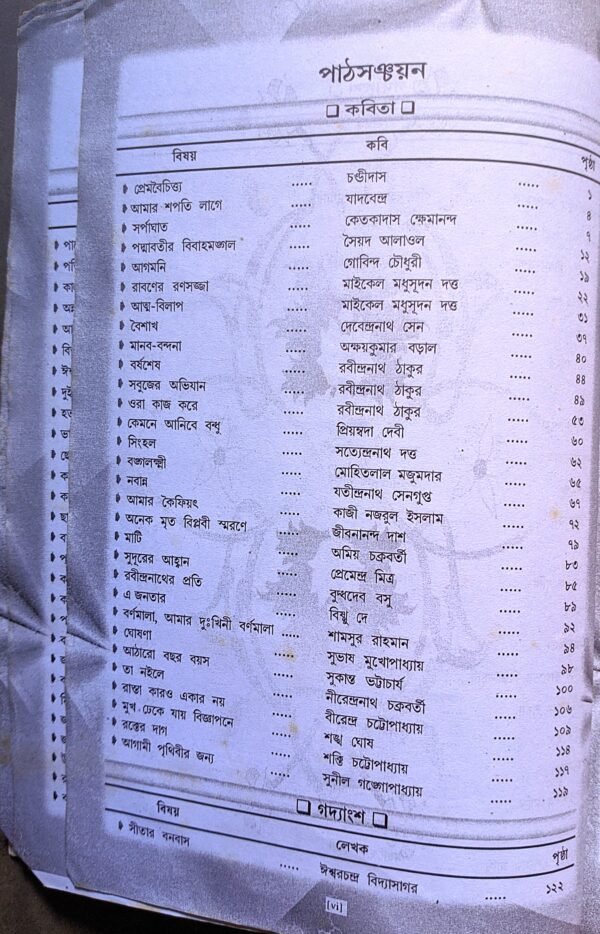 পাঠসঞ্চয়ন
□ কবিতা □
বিষয় কবি পৃষ্ঠা
প্রেমবৈচিত্ত্য ..... চণ্ডীদাস ..... ১
আমার শপতি লাগে ..... যাদবেন্দ্র ..... ৪
সর্পাঘাত ..... কেতকাদাস ক্ষেমানন্দ ..... ৭
পদ্মাবতীর বিবাহমঙ্গল ..... সৈয়দ আলাওল ..... ১২
আগমনি ..... গোবিন্দ চৌধুরী ..... ১৯
রাবণের রণসজ্জা ..... মাইকেল মধুসূদন দত্ত ..... ২২
আত্ম-বিলাপ ..... মাইকেল মধুসূদন দত্ত ..... ৩১
বৈশাখ ..... দেবেন্দ্রনাথ সেন ..... ৩৭
মানব-বন্দনা ..... অক্ষয়কুমার বড়াল ..... ৪০
বর্ষশেষ ..... রবীন্দ্রনাথ ঠাকুর ..... ৪৪
সবুজের অভিযান ..... রবীন্দ্রনাথ ঠাকুর ..... ৪৯
ওরা কাজ করে ..... রবীন্দ্রনাথ ঠাকুর ..... ৫৩
কেমনে আনিবে বন্ধু ..... প্রিয়ম্বদা দেবী ..... ৬০
সিংহল ..... সত্যেন্দ্রনাথ দত্ত ..... ৬২
বঙ্গলক্ষ্মী ..... মোহিতলাল মজুমদার ..... ৬৫
নবান্ন ..... যতীন্দ্রনাথ সেনগুপ্ত ..... ৬৭
আমার কৈফিয়ৎ ..... কাজী নজরুল ইসলাম ..... ৭২
অনেক মৃত বিপ্লবী স্মরণে ..... জীবনানন্দ দাশ ..... ৭৯
মাটি ..... অমিয় চক্রবর্তী ..... ৮৩
সুদূরের আহ্বান ..... প্রেমেন্দ্র মিত্র ..... ৮৫
রবীন্দ্রনাথের প্রতি ..... বুদ্ধদেব বসু ..... ৮৯
এ জনতার ..... বিষ্ণু দে ..... ৯২
বর্ণমালা, আমার দুঃখিনী বর্ণমালা ..... শামসুর রাহমান ..... ৯৪
ঘোষণা ..... সুভাষ মুখোপাধ্যায় ..... ৯৮
আঠারো বছর বয়স ..... সুকান্ত ভট্টাচার্য ..... ১০০
তা নইলে ..... নীরেন্দ্রনাথ চক্রবর্তী ..... ১০৬
রাস্তা কারও একার নয় ..... বীরেন্দ্র চট্টোপাধ্যায় ..... ১০৯
মুখ ঢেকে যায় বিজ্ঞাপনে ..... শঙ্খ ঘোষ ..... ১১৪
রক্তের দাগ ..... শক্তি চট্টোপাধ্যায় ..... ১১৭
আগামী পৃথিবীর জন্য ..... সুনীল গঙ্গোপাধ্যায় ..... ১১৯
□ গদ্যাংশ □
বিষয় লেখক পৃষ্ঠা
সীতার বনবাস ..... ঈশ্বরচন্দ্র বিদ্যাসাগর ..... ১২২
[vi]